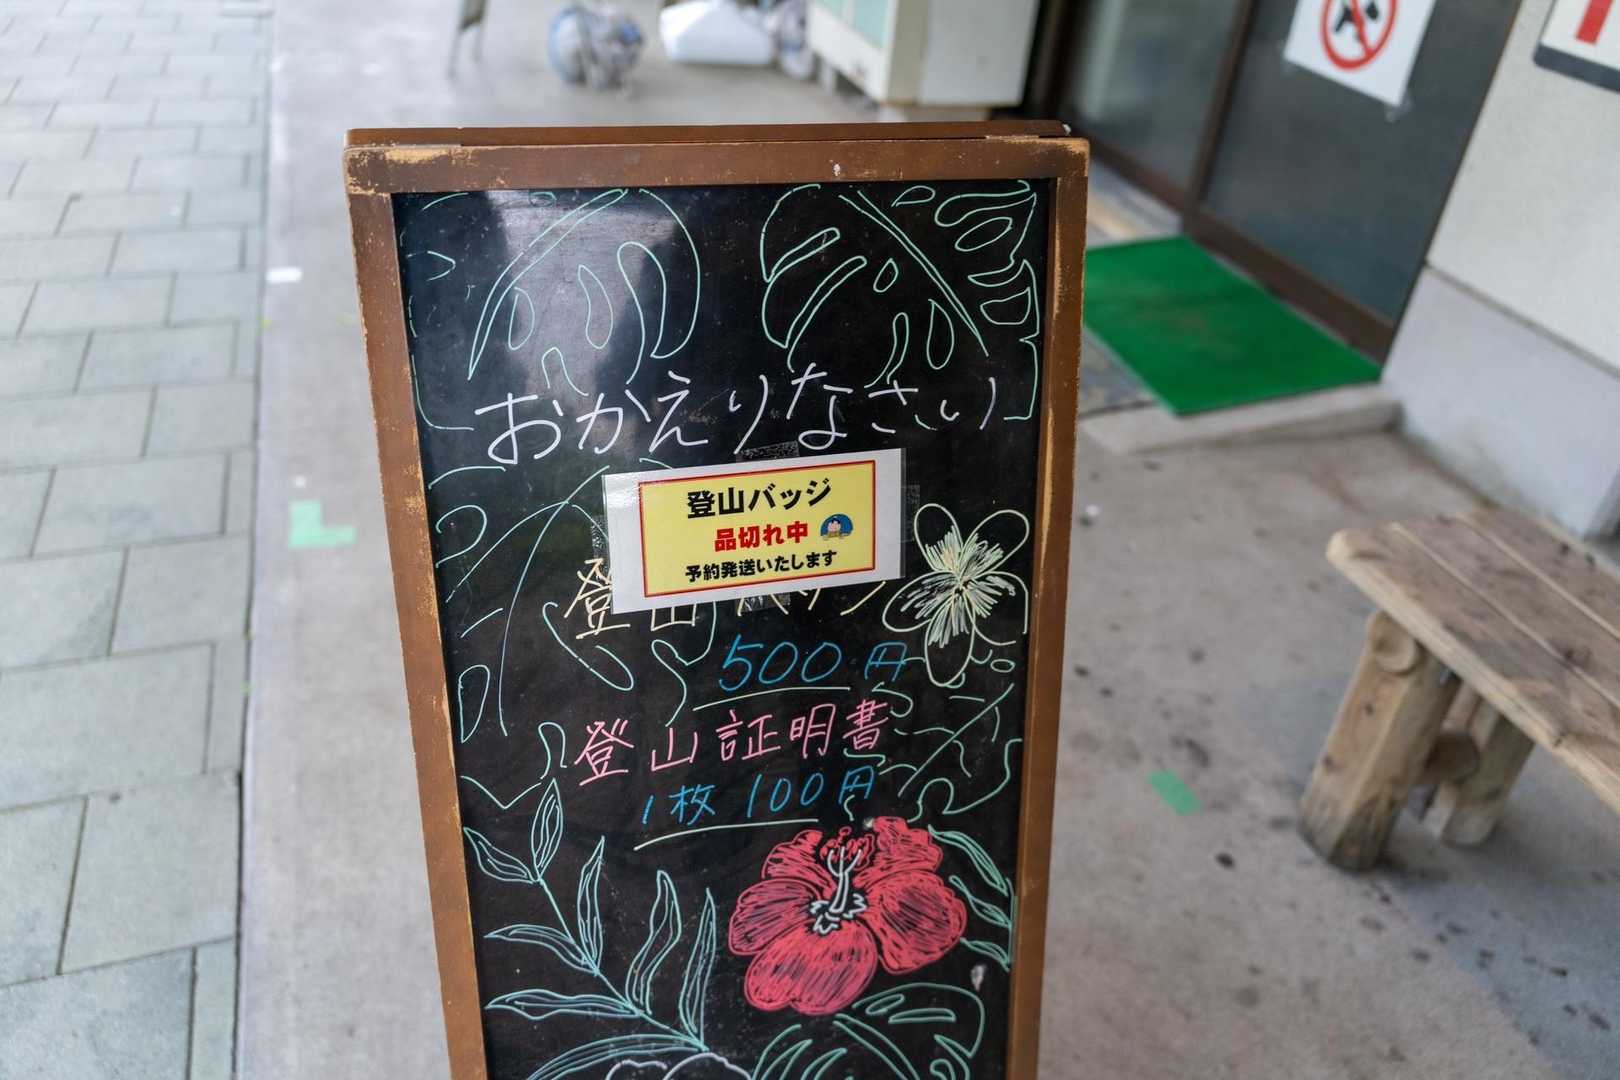 おかえりなさい
登山バッジ
品切れ中
予約発送いたします
登山バッジ
500円
登山証明書
1枚 100円